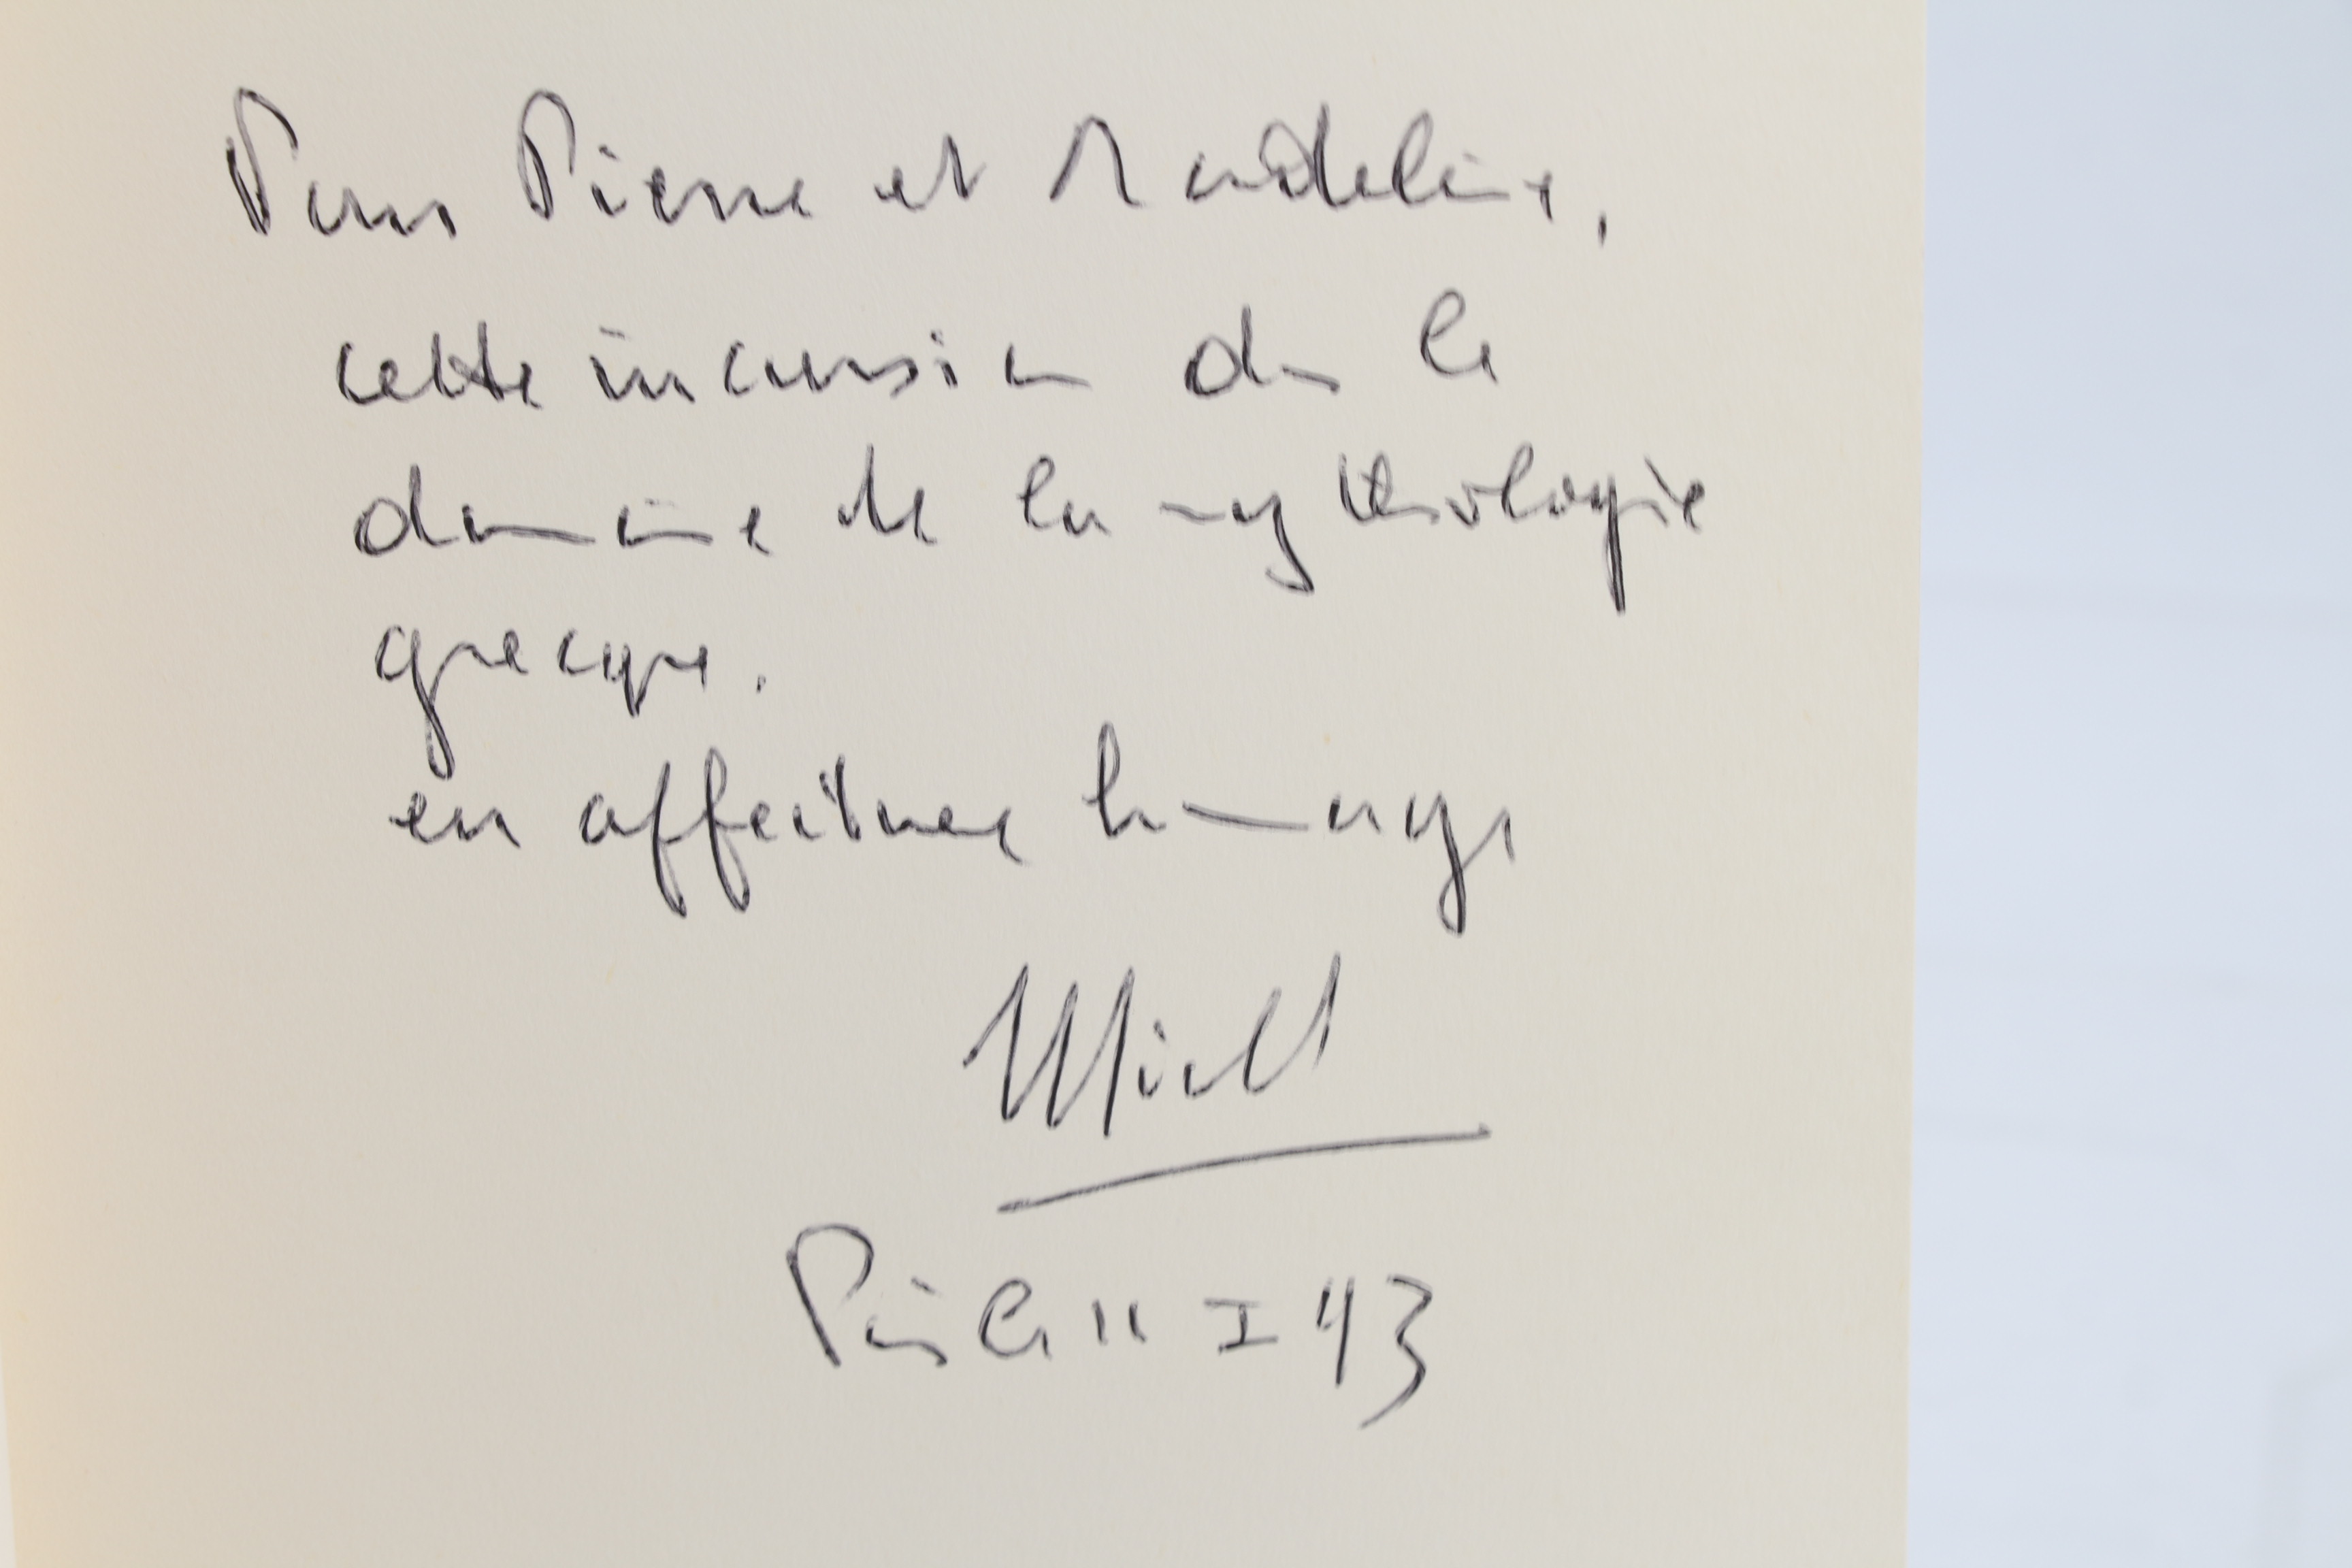 Pour Pierre et Madeleine,
cette incursion dans le
domaine de la mythologie
grecque.
en affectueux hommage
Paris le 11 I 93